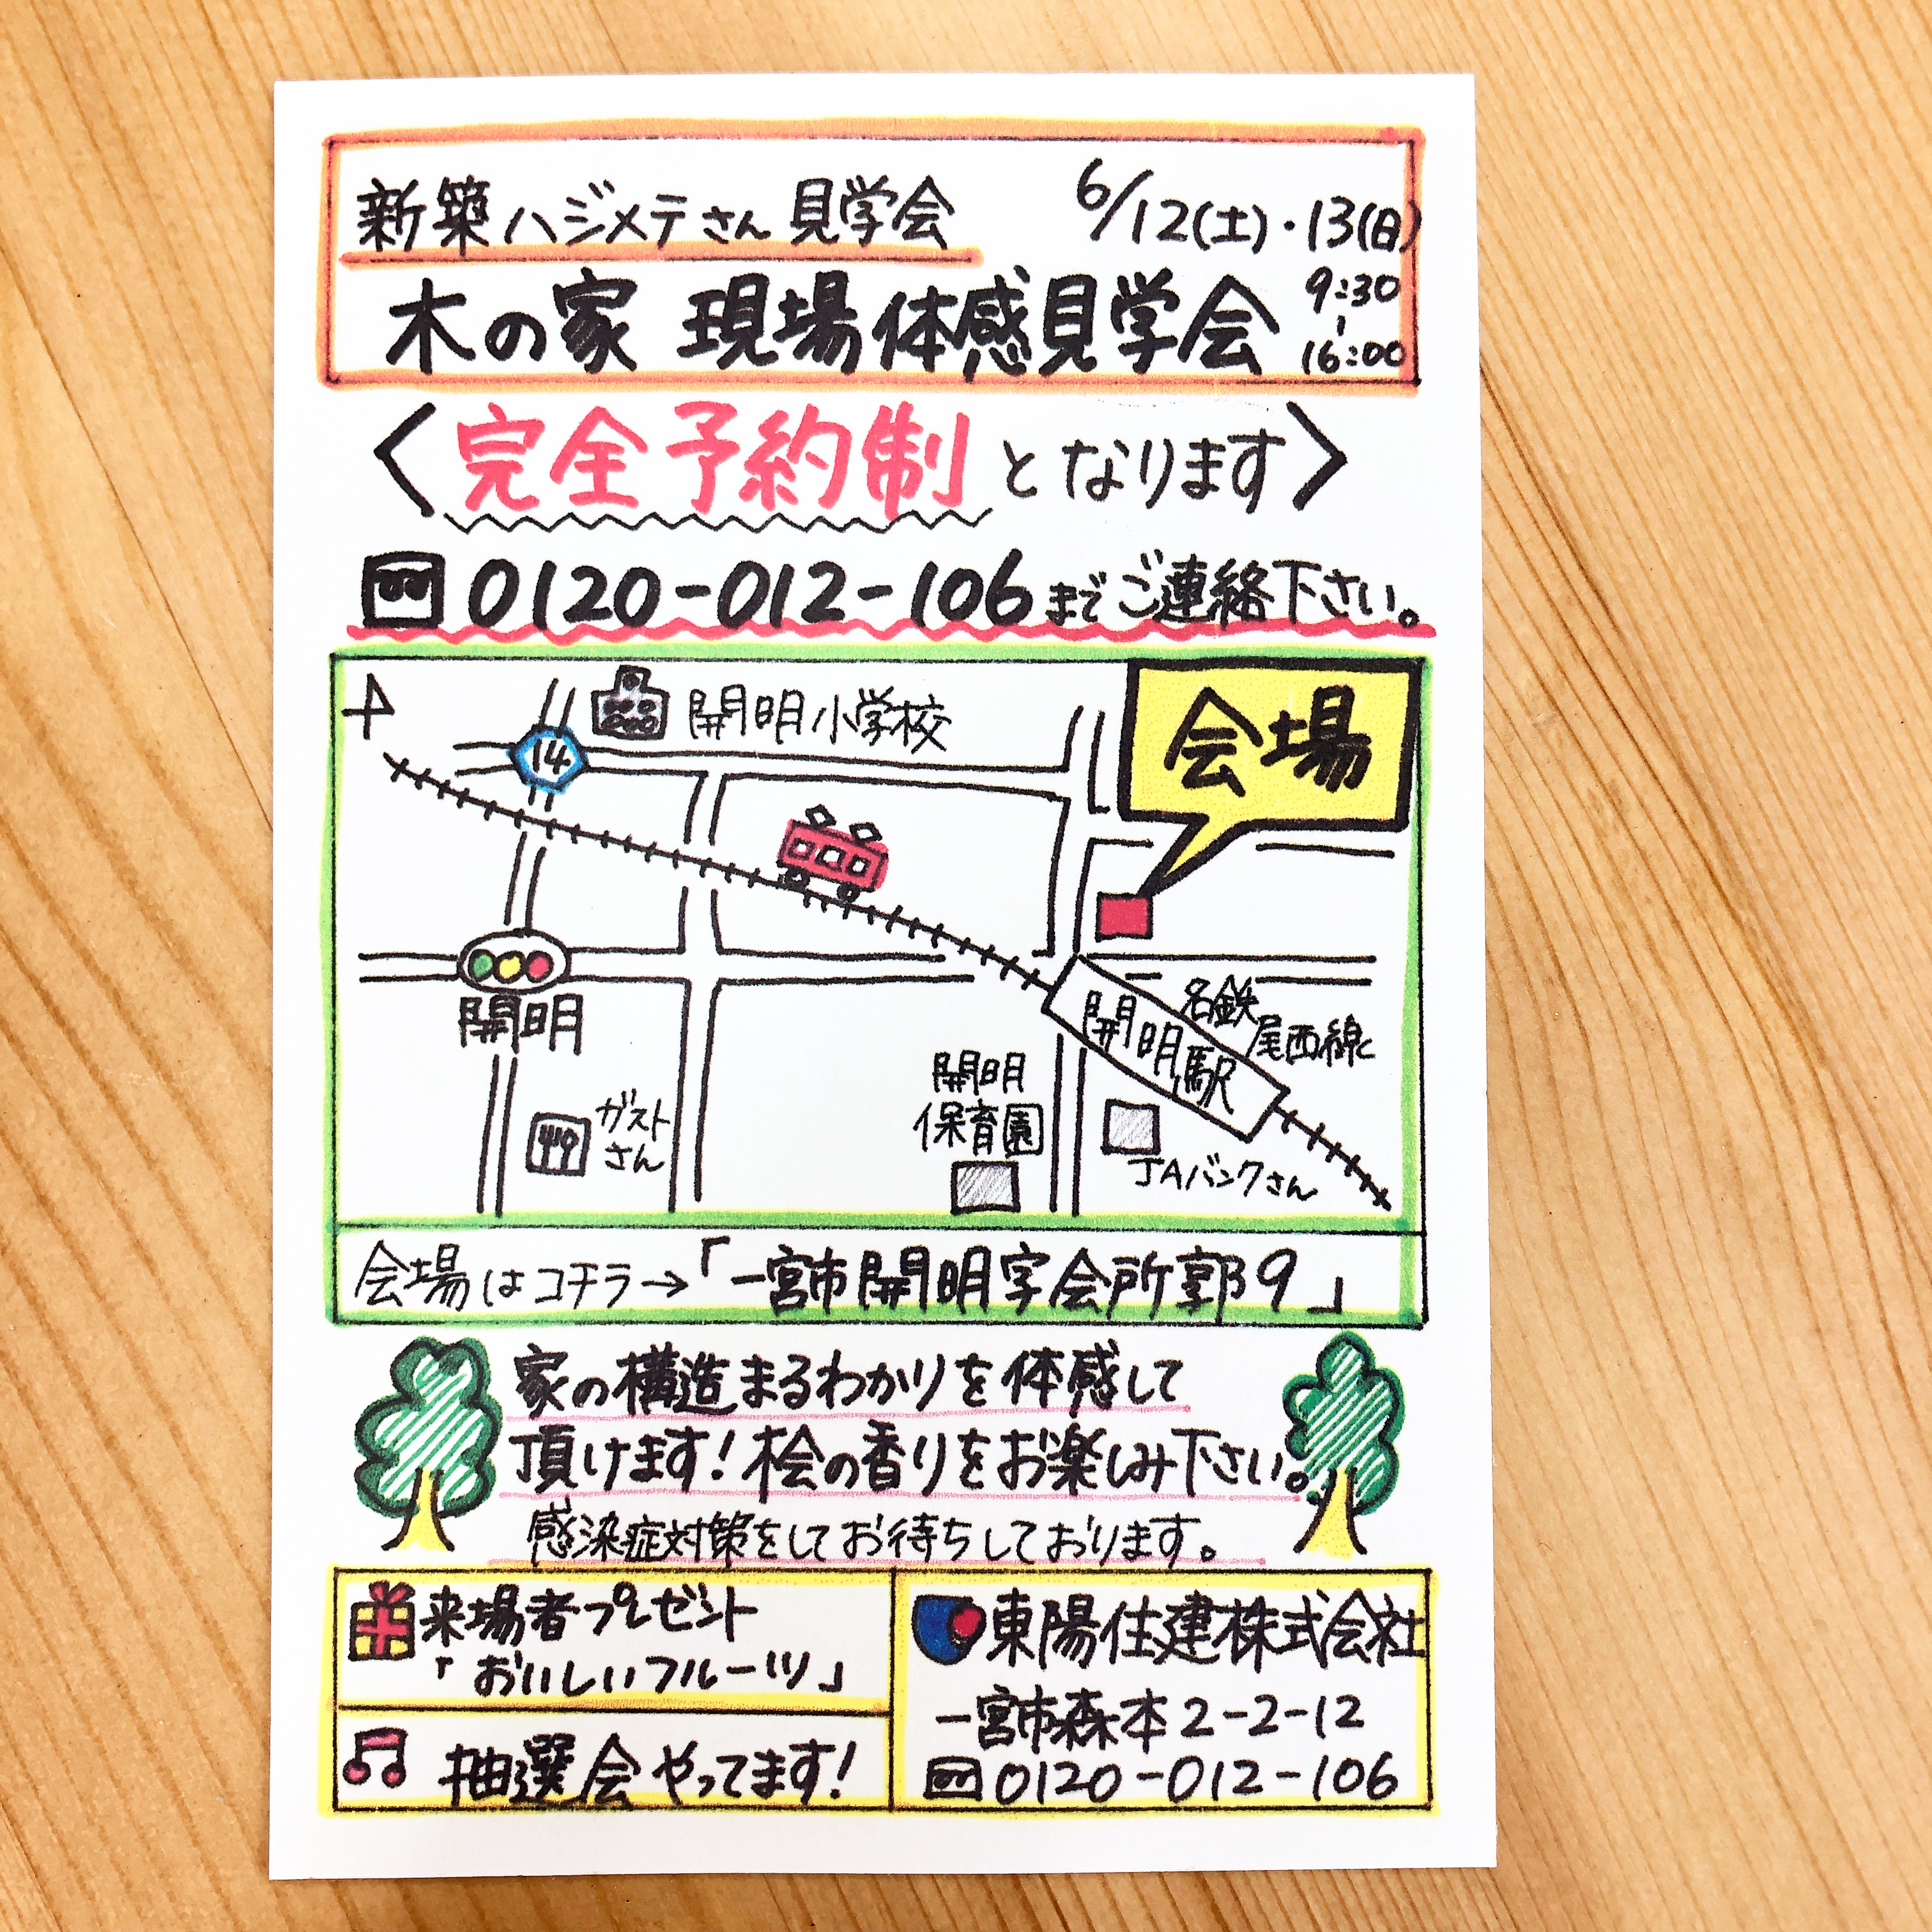 新築ハジメテさん見学会 6/12(土)・13(日)
木の家 現場体感見学会 9:30
16:00
〈完全予約制となります〉
0120-012-106までご連絡下さい。
開明小学校
会場
14
開明
名鉄
尾西線
開明駅
開明
保育園
ガスト
さん
JAバンクさん
会場はコチラ→「一宮市開明字会所郭9」
家の構造まるわかりを体感して
頂けます!桧の香りをお楽しみ下さい。
感染症対策をしてお待ちしております。
来場者プレゼント
「おいしいフルーツ」
抽選会やってます!
東陽住建株式会社
一宮市森本2-2-12
0120-012-106